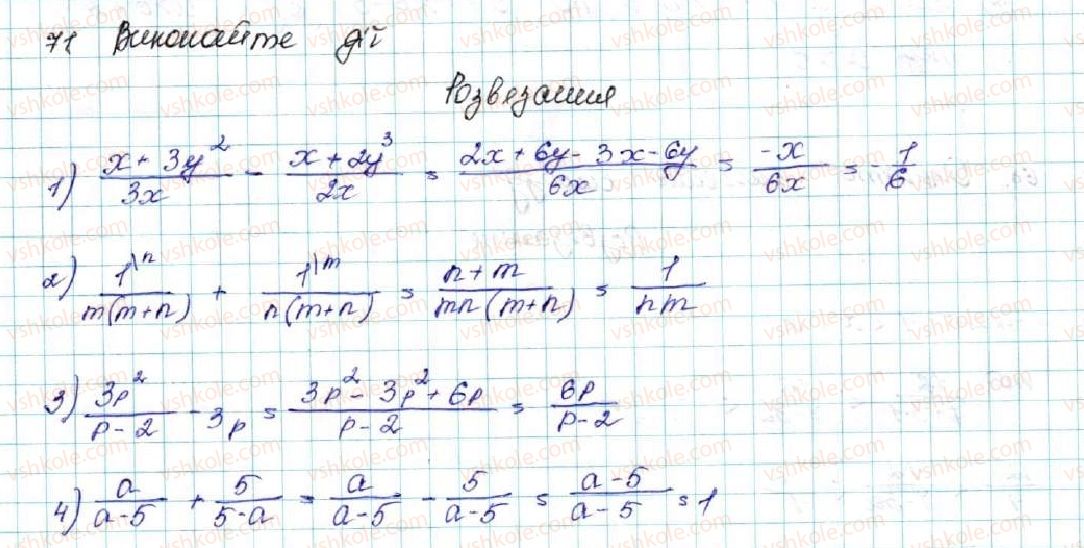 71 Виконайте дії
Розвязання
1) (x + 3y^2)/(3x) - (x + 2y^3)/(2x) = (2x + 6y - 3x - 6y)/(6x) = (-x)/(6x) = -1/6
2) 1^{\n}/(m(m+n)) + 1^{\m}/(n(m+n)) = (n + m)/(mn(m+n)) = 1/(nm)
3) 3p^2/(p - 2) - 3p = (3p^2 - 3p^2 + 6p)/(p - 2) = 6p/(p - 2)
4) a/(a - 5) + 5/(5 - a) = a/(a - 5) - 5/(a - 5) = (a - 5)/(a - 5) = 1